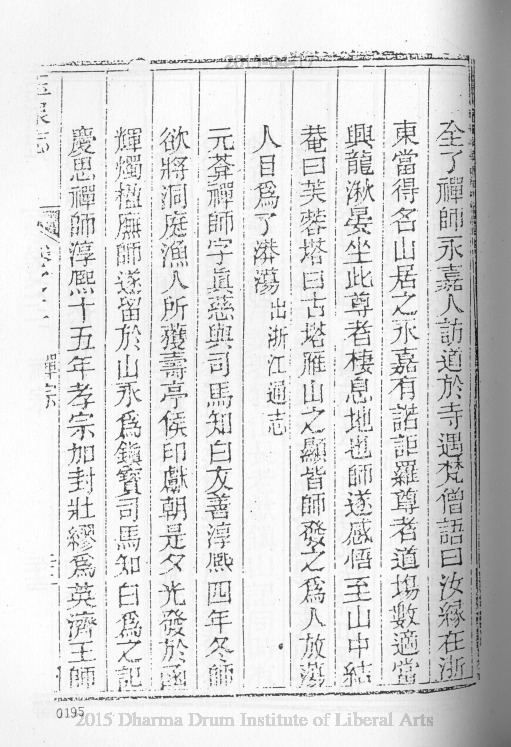 全了禪師永嘉人訪道於寺遇梵僧語曰汝緣在浙
東當得名山居之永嘉有諾詎羅尊者道場數適當
興龍湫晏坐此尊者棲息地也師遂感悟至山中結
菴曰芙蓉塔曰古塔雁山之顯皆師發之為人放蕩
人目為了漭蕩 出浙江通志
元莽禪師字眞慈與司馬知白友善淳熈四年冬師
欲將洞庭漁人所獲壽亭侯印獻朝是夕光發於函
輝燭楹廡師遂留於山永為鎭寶司馬知白為之記
慶思禪師淳熈十五年孝宗加封壯繆為英濟王師
玉泉志
卷之二
禪宗
0195
2015 Dharma Drum Institute of Liberal Arts